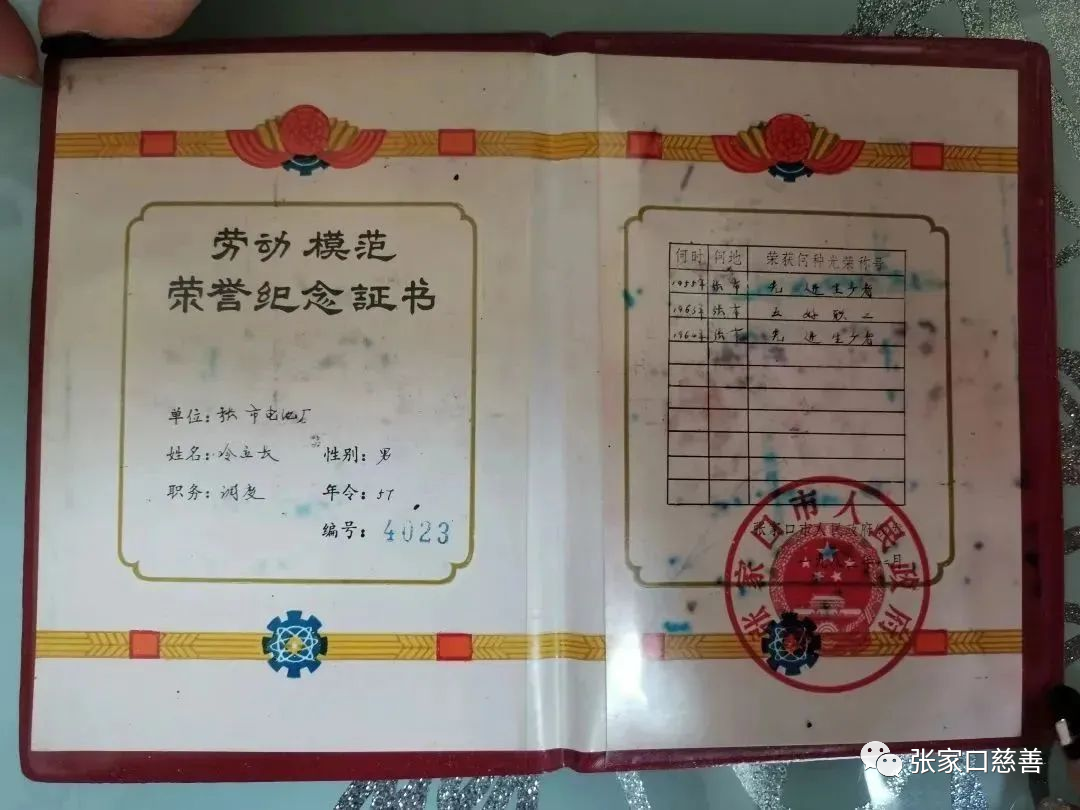 劳动模范
荣誉纪念証书
单位：张市电池厂
姓名：冷立长 性别：男
职务：调度 年令：57
编号：4023
何时 何地 荣获何种光荣称号
1955年 张市 先进生产者
1963年 张市 五好职工
1964年 张市 先进生产者
张家口市人民政府
张家口市人民政府
张家口慈善